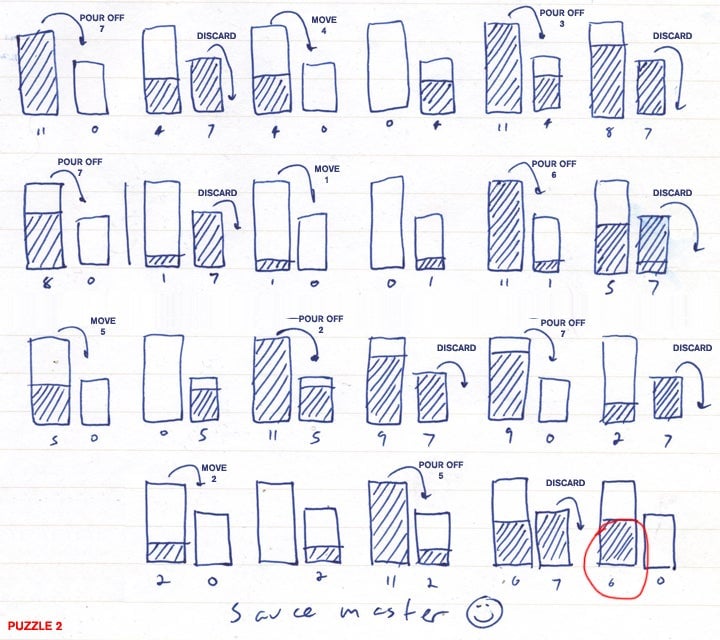 POUR OFF 7 DISCARD MOVE 4 POUR OFF 3 DISCARD
11 0 4 7 4 0 0 4 11 4 8 7
POUR OFF 7 DISCARD MOVE 1 POUR OFF 6 DISCARD
8 0 1 7 1 0 0 1 11 1 5 7
MOVE 5 POUR OFF 2 DISCARD POUR OFF 7 DISCARD
5 0 0 5 11 5 9 7 9 0 2 7
MOVE 2 POUR OFF 5 DISCARD
2 0 2 11 2 6 7 6 0
Sauce master
PUZZLE 2